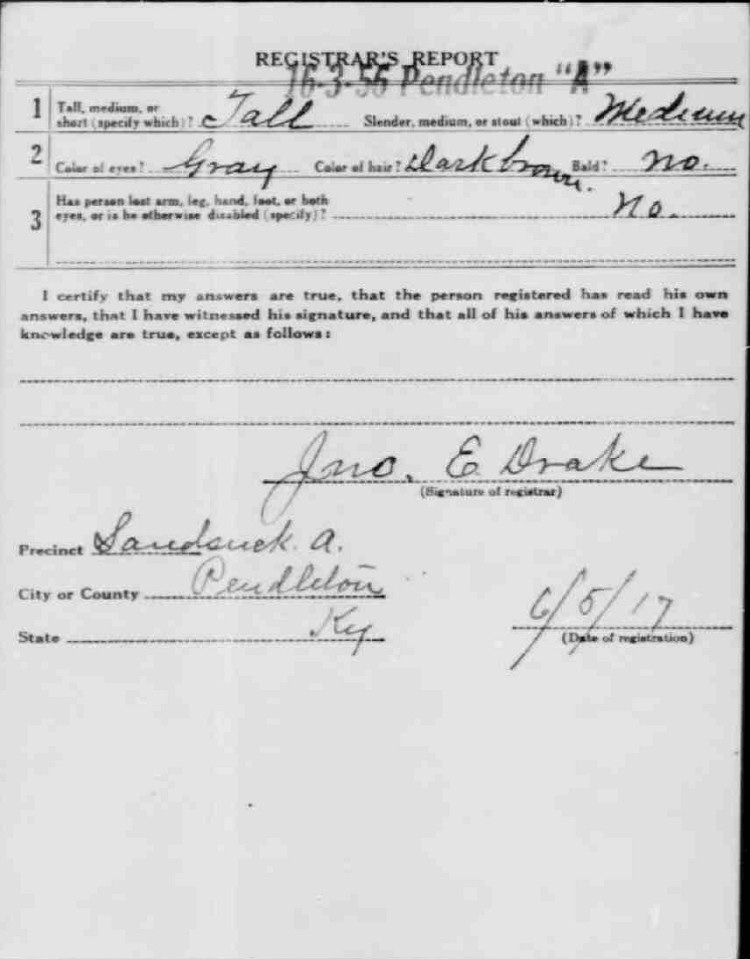 REGISTRAR'S REPORT
16-3-56 Pendleton "A"
1 Tall, medium, or
short (specify which)? Tall Slender, medium, or stout (which)? Medium
2 Color of eyes? Gray Color of hair? Dark brown. Bald? no.
3 Has person lost arm, leg, hand, foot, or both
eyes, or is he otherwise disabled (specify)? No.
I certify that my answers are true, that the person registered has read his own
answers, that I have witnessed his signature, and that all of his answers of which I have
knowledge are true, except as follows:
Jno. E Drake
(Signature of registrar)
Precinct Sandsuck. A.
City or County Pendleton
State Ky
6/5/17
(Date of registration)